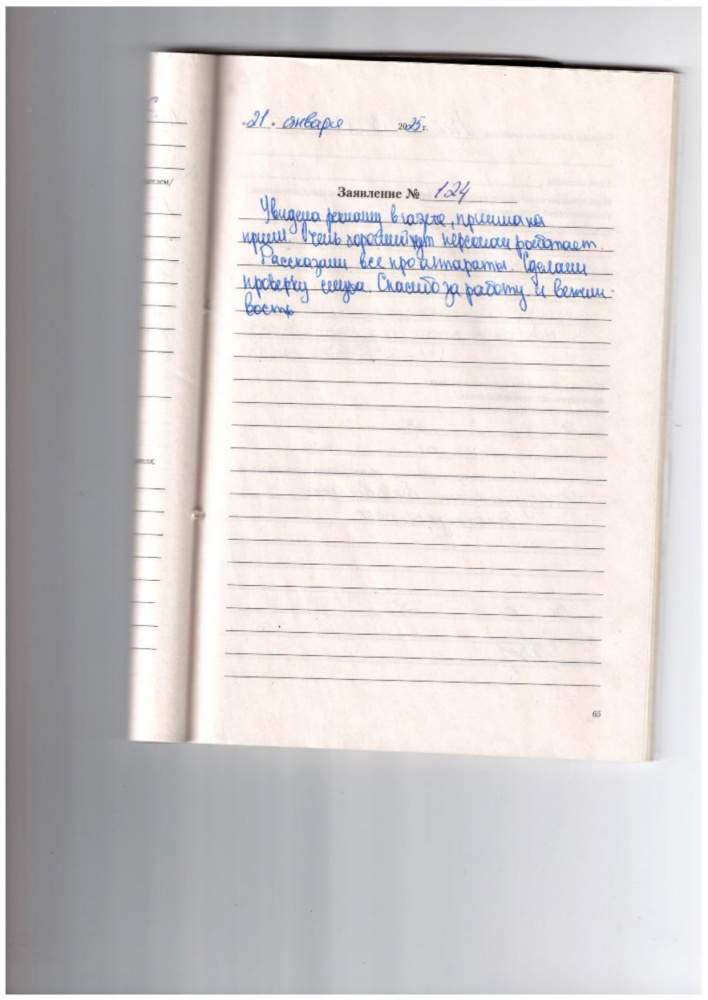 «21» января 2025 г.
Заявление № 124
Увидела рекламу в газете, пришла на
прием. Очень хороший тут персонал работает.
Рассказали все про аппараты. Сделали
проверку слуха. Спасибо за работу и вежли-
вость
65